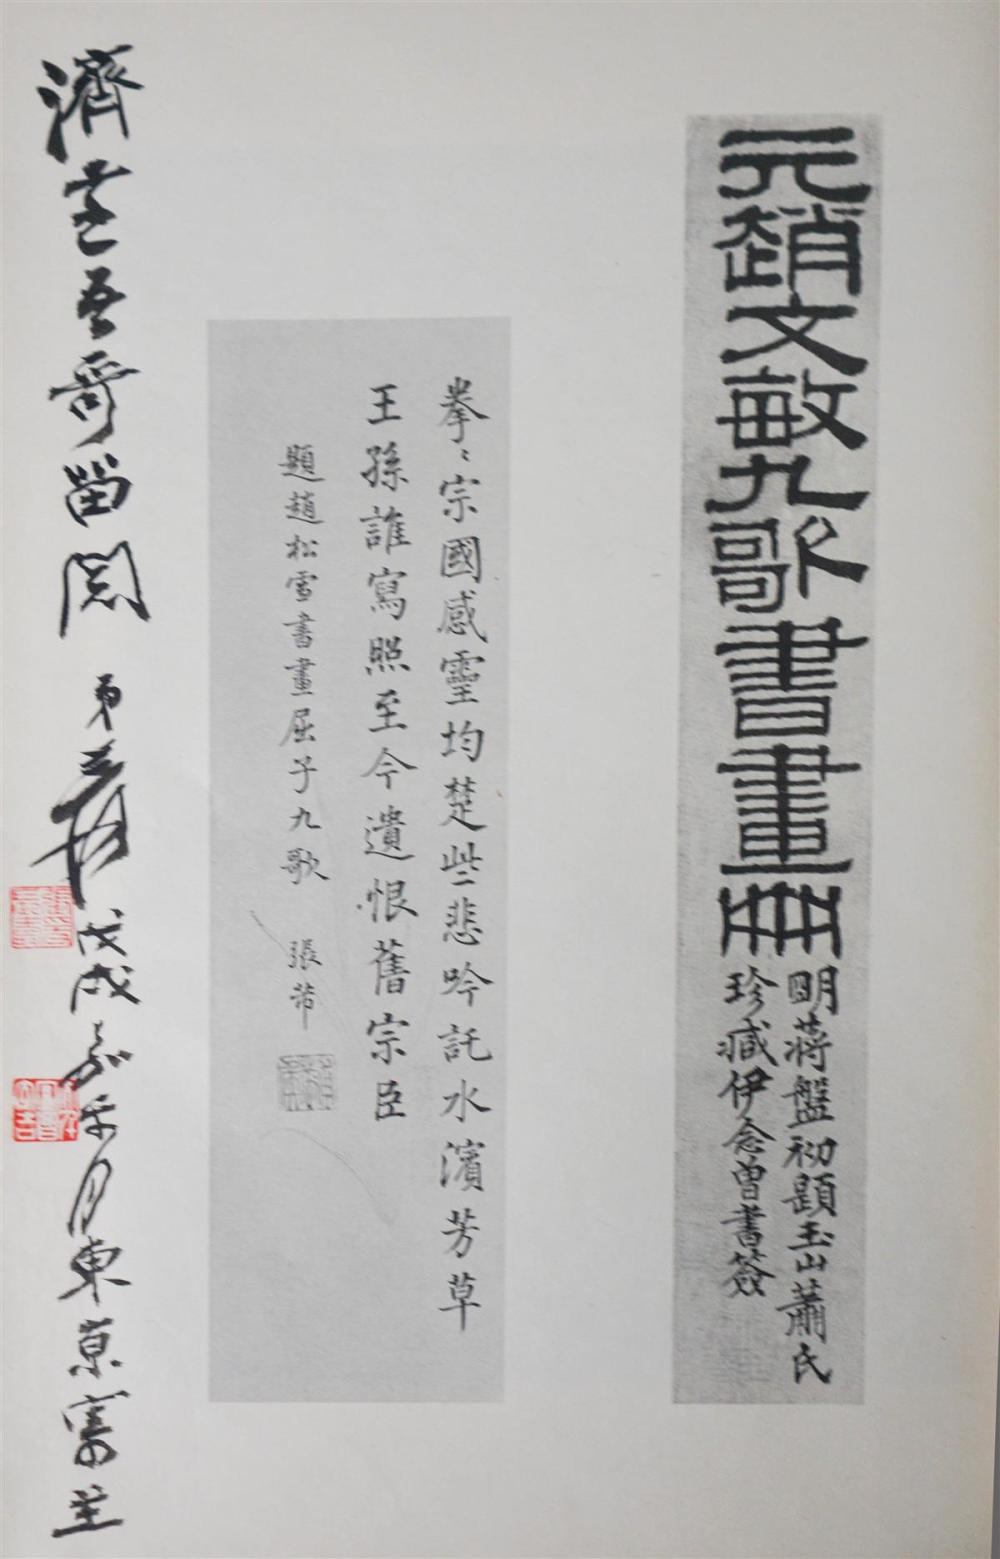 元趙文敏九歌書畫冊
明蔣盤初題玉山蕭氏
珍臧伊念曾書簽
拳〻宗國感靈均楚些悲吟託水濱芳草
王孫誰寫照至今遺恨舊宗臣
題趙松雪書畫屈子九歌 張芾
濟遠吾哥留閱 弟爰 戊戌嘉平月東京寓並